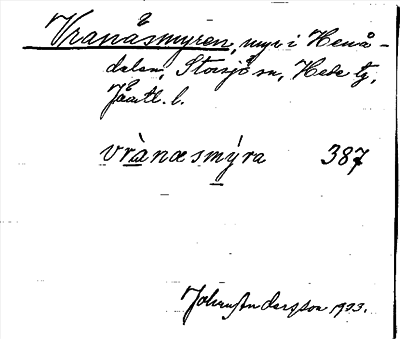 Vranåsmyren, myr i Henå-
dalen, Storsjö sn, Hede tg,
Jämtl. l.
vrànæsmýra 387
Johan Andersson 1933.